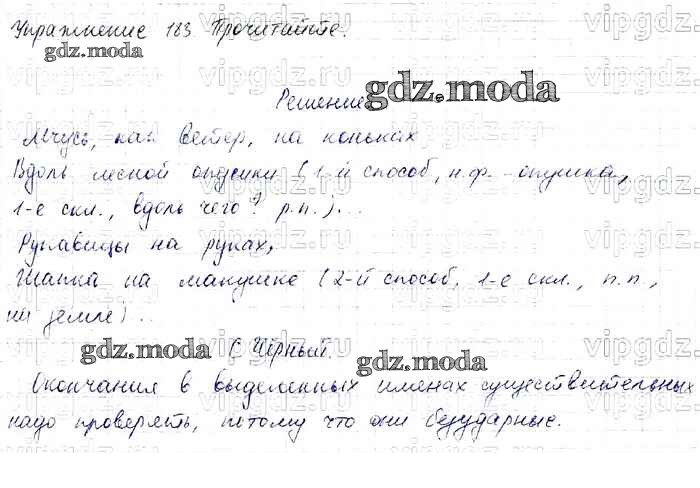 Упражнение 183 Прочитайте.
gdz.moda
Решение
gdz.moda
Мчусь, как ветер, на коньках
Вдоль лесной опушки (1-й способ, н.ф. - опушка,
1-е скл., вдоль чего? р.п.)...
Рукавицы на руках,
Шапка на макушке (2-й способ, 1-е скл., п.п.,
на земле)...
С. Чёрный.
gdz.moda
gdz.moda
Окончания в выделенных именах существительных
надо проверять, потому что они безударные.
vipgdz.ru